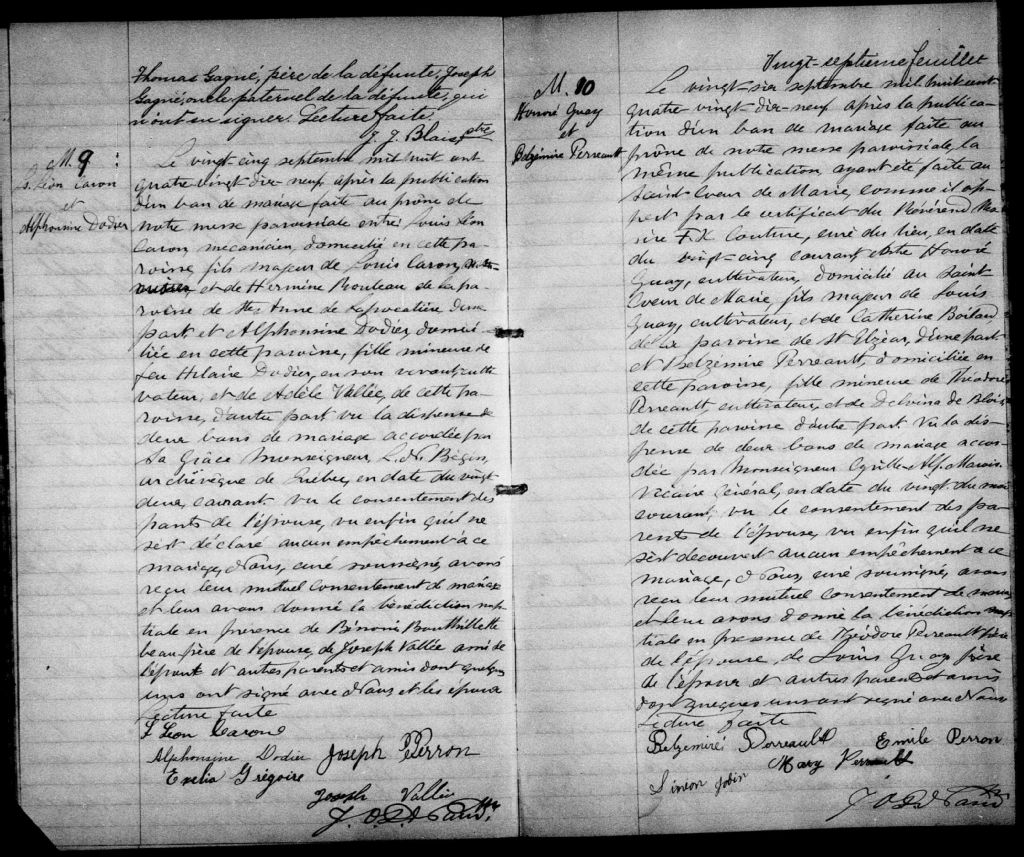 Thomas Gagné, père de la défunte, Joseph
Gagné, oncle paternel de la défunte, qui
n'ont su signer. Lecture faite.
J. J. Blais ptre
M. 9
L. Léon Caron
et
Alphonsine Dodier
Le vingt cinq septembre mil huit cent
quatre-vingt dix-neuf, après la publication
d'un ban de mariage faite au prône de
notre messe paroissiale entre Louis Léon
Caron, mécanicien, domicilié en cette pa-
roisse, fils majeur de Louis Caron,
et de Hermine Rouleau de la pa-
roisse de Ste Anne de Lapocatière d'une
part, et Alphonsine Dodier, domici-
liée en cette paroisse, fille mineure de
feu Hilaire Dodier, en son vivant culti-
vateur, et de Adèle Vallée, de cette pa-
roisse, d'autre part vu la dispense de
deux bans de mariage accordée par
Sa Grâce Monseigneur, L. N. Bégin,
archévêque de Québec, en date du vingt
deux courant vu le consentement des
parents de l'épouse, vu enfin qu'il ne
s'est déclaré aucun empêchement à ce
mariage, Nous, curé soussigné, avons
reçu leur mutuel consentement de mariage
et leur avons donné la bénédiction nup-
tiale en présence de Bénoni Bouthillette
beau-père de l'épouse, de Joseph Vallée ami de
l'époux et autres parents et amis dont quelques
uns ont signé avec Nous et les époux
Lecture faite
L Léon Caron
Alphonsine Dodier Joseph Perron
Exelia Grégoire
Joseph Vallée
Vingt-septième feuillet
M. 10
Honoré Guay
et
Belzémire Perreault
Le vingt-six septembre mil huit cent
quatre-vingt-dix-neuf après la publica-
tion d'un ban de mariage faite au
prône de notre messe paroissiale, la
même publication, ayant été faite au
Saint-Coeur de Marie, comme il ap-
pert par le certificat du Révérend Mes-
sire F. X. Couture, curé du lieu, en date
du vingt-cinq courant entre Honoré
Guay, cultivateur, domicilié au Saint
Coeur de Marie fils majeur de Louis
Guay, cultivateur, et de Catherine Boilard
de la paroisse de St Elzéar, d'une part
et Belzémire Perreault, domiciliée en
cette paroisse, fille mineure de Théodore
Perreault, cultivateur, et de Delvina de Blois
de cette paroisse d'autre part Vu la dis-
pense de deux bans de mariage accor-
dée par Monseigneur Cyrille Alf. Marois
Vicaire Général, en date du vingt du mois
courant, vu le consentement des pa-
rents de l'épouse, vu enfin qu'il ne
s'est découvert aucun empêchement à ce
mariage, Nous, curé soussigné, avons
reçu leur mutuel consentement de mariage
et leur avons donné la bénédiction nup-
tiale en présence de Théodore Perreault père
de l'épouse, de Louis Guay père
de l'époux et autres parents et amis
dont quelques uns ont signé avec Nous
Lecture faite
Belzemire Perreault Emile Perron
Mary Perreault
Simeon Jodin